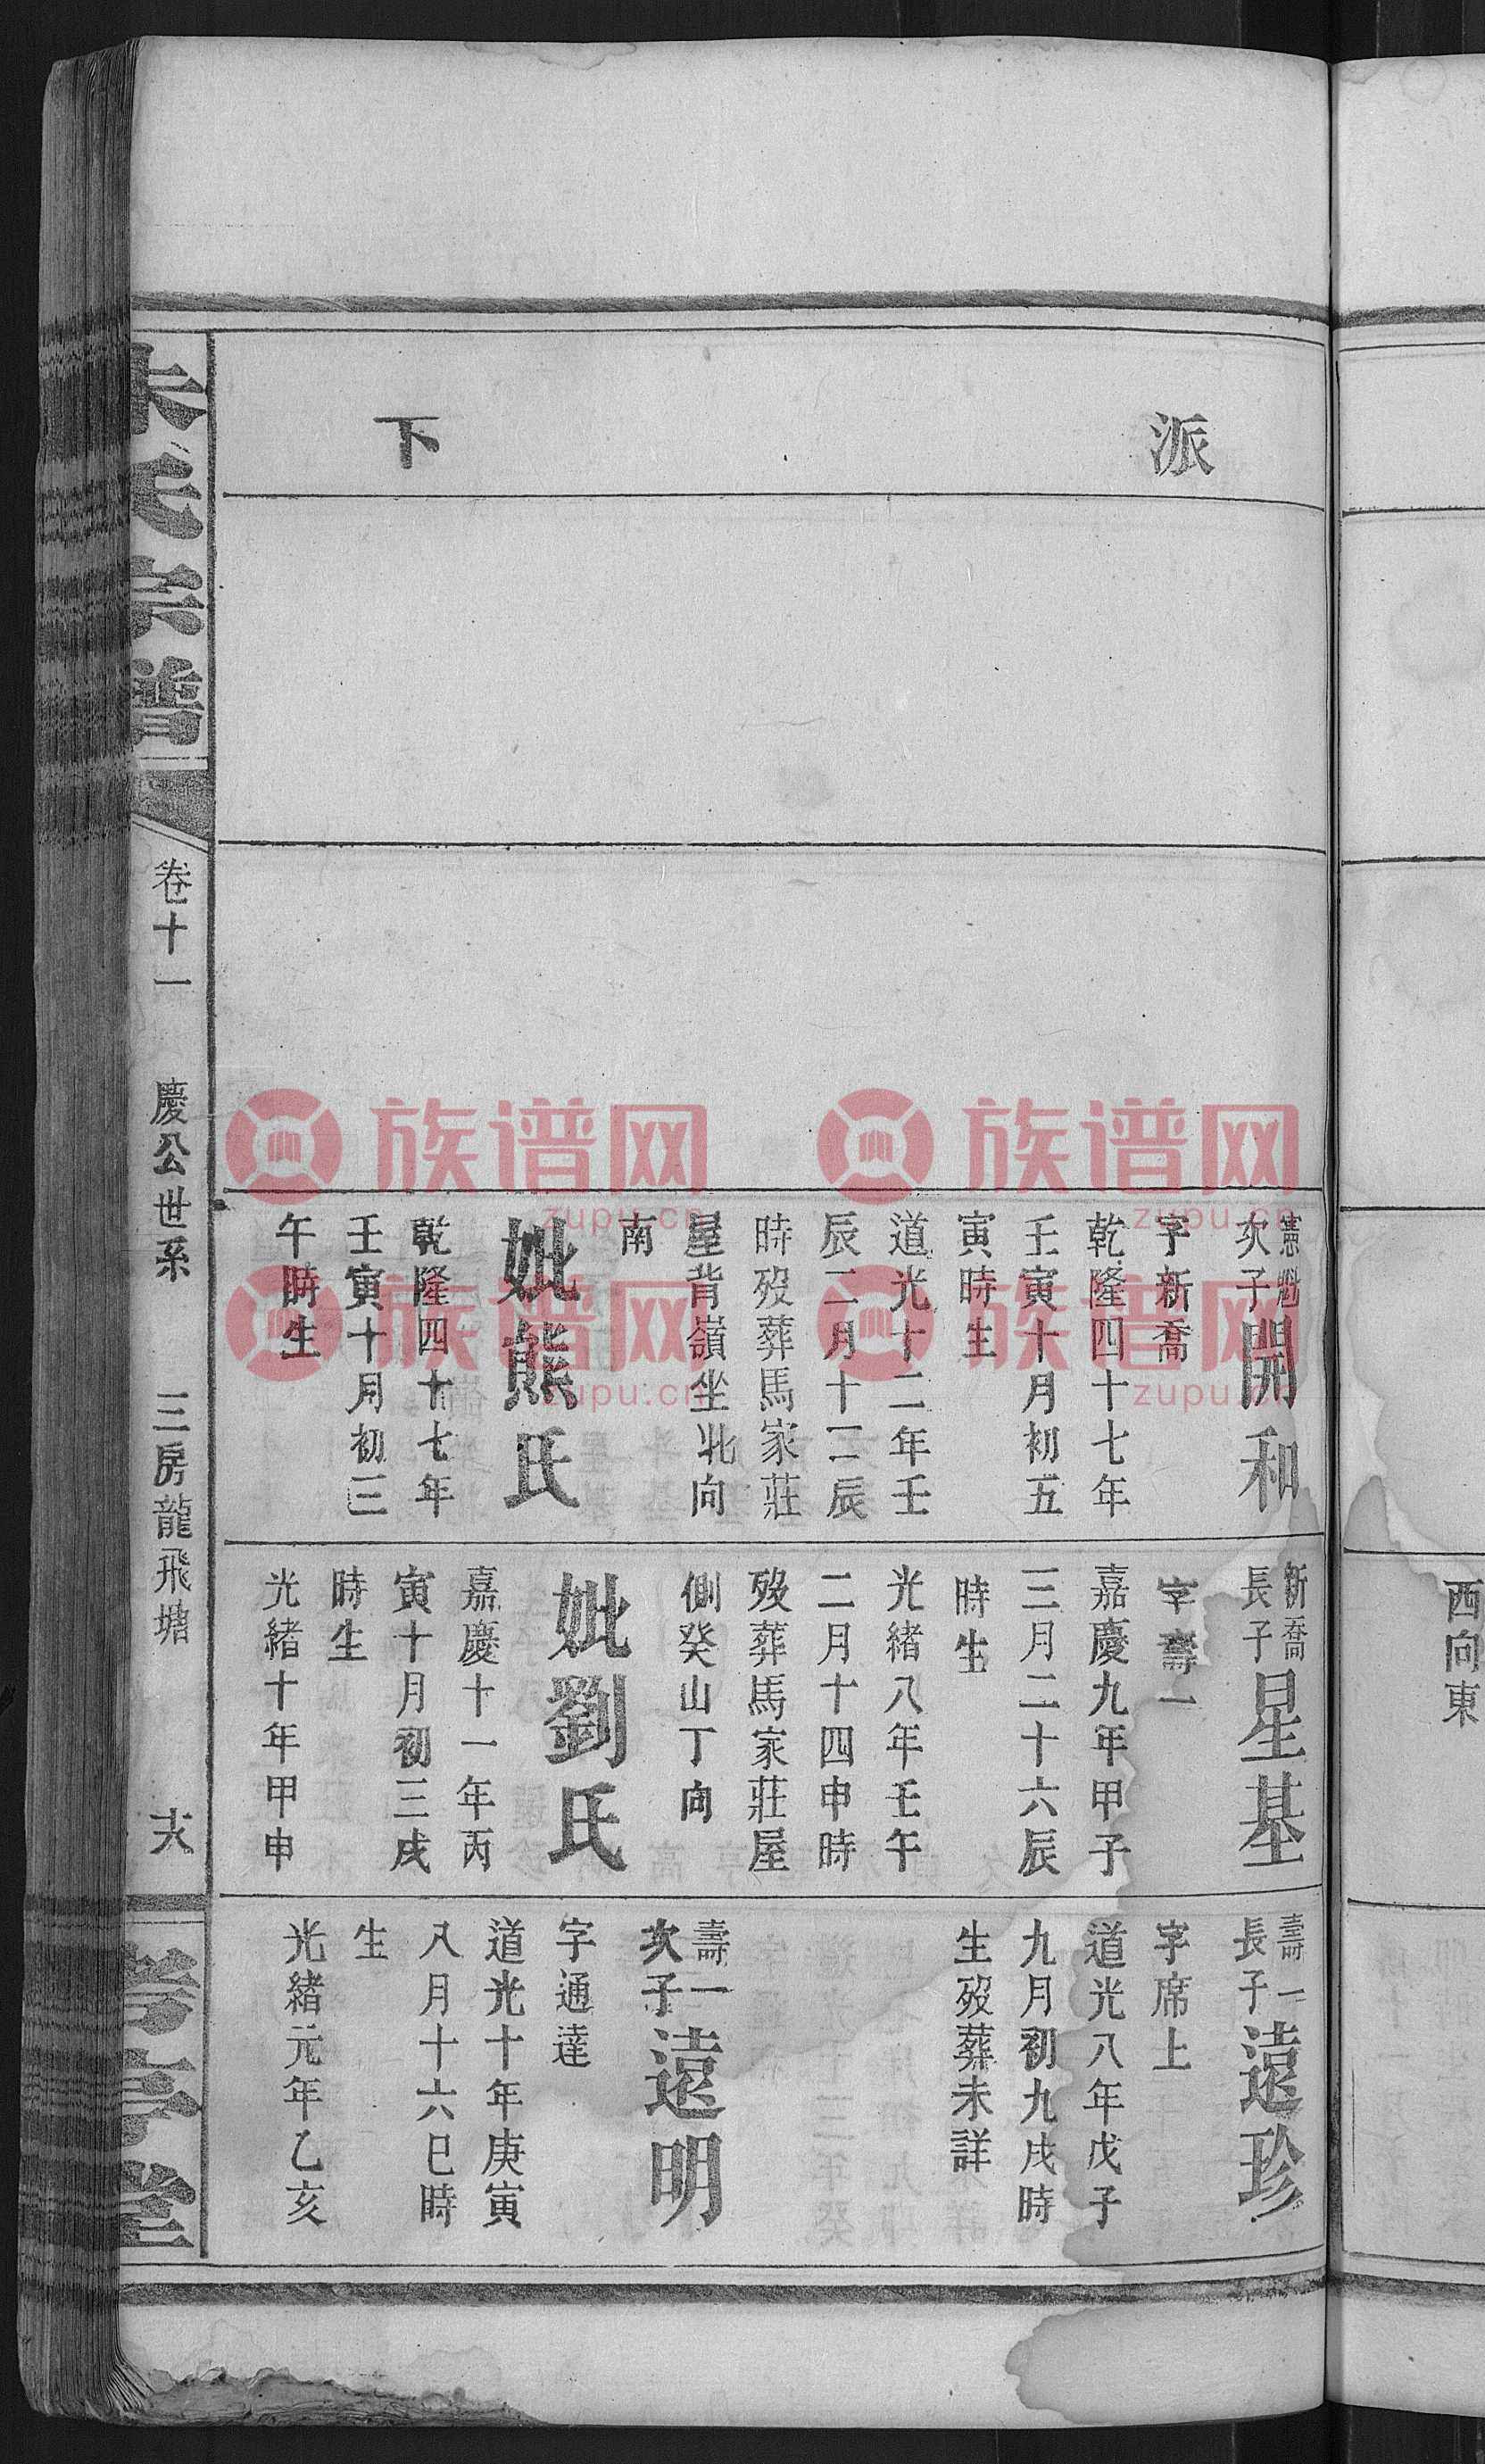 派
下
憲魁
次子
開和
字新喬
乾隆四十七年
壬寅十月初五
寅時生
道光十二年壬
辰二月十二辰
時歿葬馬家莊
屋背嶺坐北向
南
妣熊氏
乾隆四十七年
壬寅十月初三
午時生
新喬
長子
星基
字壽一
嘉慶九年甲子
三月二十六辰
時生
光緒八年壬午
二月十四申時
歿葬馬家莊屋
側癸山丁向
妣劉氏
嘉慶十一年丙
寅十月初三戌
時生
光緒十年甲申
壽一
長子
遠珍
字席上
道光八年戊子
九月初九戌時
生歿葬未詳
壽一
次子
遠明
字通達
道光十年庚寅
八月十六巳時
生
光緒元年乙亥
朱氏宗譜
卷十一
慶公世系
三房龍飛塘
考亭堂
西向東
族谱网
zupu.cn
族谱网
zupu.cn
族谱网
zupu.cn
族谱网
zupu.cn